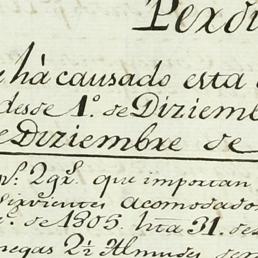 Perdi
ha causado esta
desde 1º. de Diziemb
Diziembre de
2gs. que importan
Sirvientes Acomodado
de 1805. hta 31. de
negas 2½ Almudes